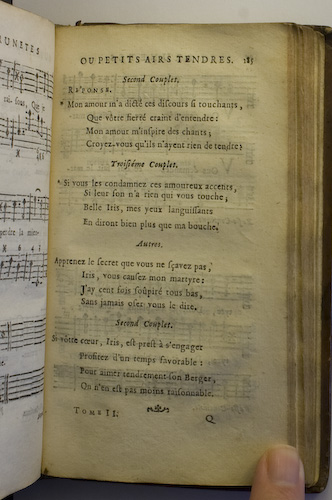 RUNETES
OU PETITS AIRS TENDRES. 185
Second Couplet.
RE'PONSE.
* Mon amour m'a dicté ces discours si touchants,
Que vôtre fierté craint d'entendre:
Mon amour m'inspire des chants;
Croyez-vous qu'ils n'ayent rien de tendre?
Troisiéme Couplet.
* Si vous les condamnez ces amoureux accents,
Si leur son n'a rien qui vous touche,
Belle Iris, mes yeux languissants
En diront bien plus que ma bouche.
Autres.
Apprenez le secret que vous ne sçavez pas,
Iris, vous causez mon martyre:
J'ay cent fois soûpiré tous bas,
Sans jamais oser vous le dire.
Second Couplet.
Si vôtre cœur, Iris, est prest à s'engager
Profitez d'un temps favorable:
Pour aimer tendrement son Berger,
On n'en est pas moins raisonnable.
TOME II. Q